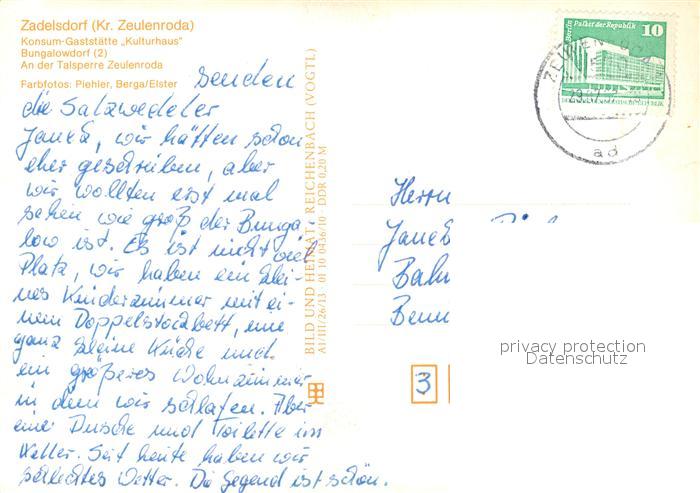 Zadelsdorf (Kr. Zeulenroda)
Konsum-Gaststätte „Kulturhaus"
Bungalowdorf (2)
An der Talsperre Zeulenroda
Farbfotos: Piehler, Berga/Elster
senden
die Salzwedeler
wir hätten schon
eher geschrieben, aber
wir wollten erst mal
sehen wie groß der Bunga-
low ist. Es ist nicht viel
Platz, wir haben ein klei-
nes Kinderzimmer mit ei-
nem Doppelstockbett, eine
ganz kleine Küche und
ein größeres Wohnzimmer
in dem wir schlafen. Aber
eine Dusche und Toilette im
Keller. Seit heute haben wir
schlechtes Wetter. Die Gegend ist schön.
BILD UND HEIMAT · REICHENBACH (VOGTL)
A1/III/26/13 01 10 0436/10 DDR 0,20 M
Berlin Palast der Republik
10
ad
Herrn
3
privacy protection
Datenschutz